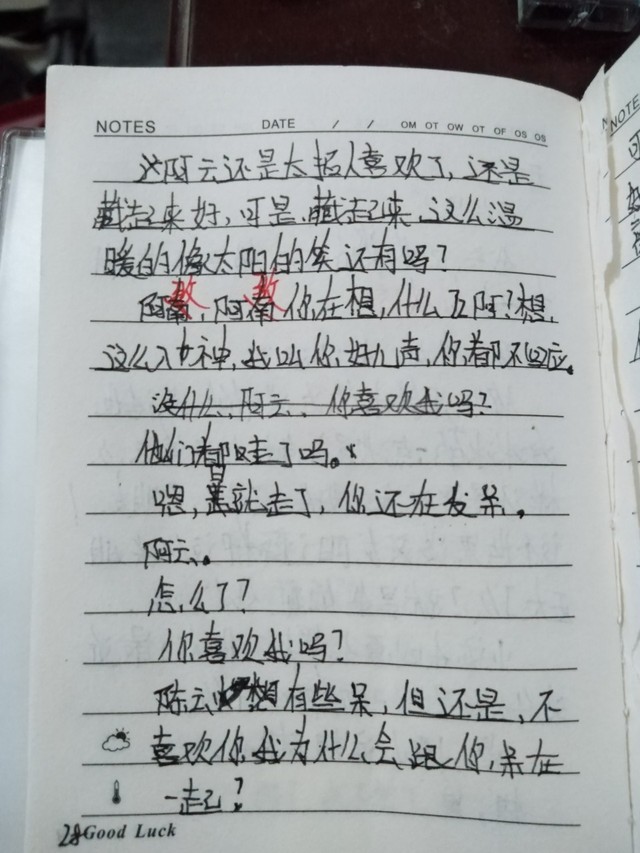 NOTES DATE / / OM OT OW OT OF OS OS
这阿云还是太招人喜欢了,还是
藏起来好,可是,藏起来,这么温
暖的像太阳的笑还有吗?
阿敖,阿敖你在想,什么瓦阿?想,
这么入女神,我叫你好几声,你都不回应。
没什么,阿云,你喜欢我吗?
他们都走了吗。
嗯,早就走了,你还在发呆。
阿云。
怎么了?
你喜欢我吗?
陈云想有些呆,但还是,不
喜欢你我为什么会跟你,呆在
一起?
28 Good Luck